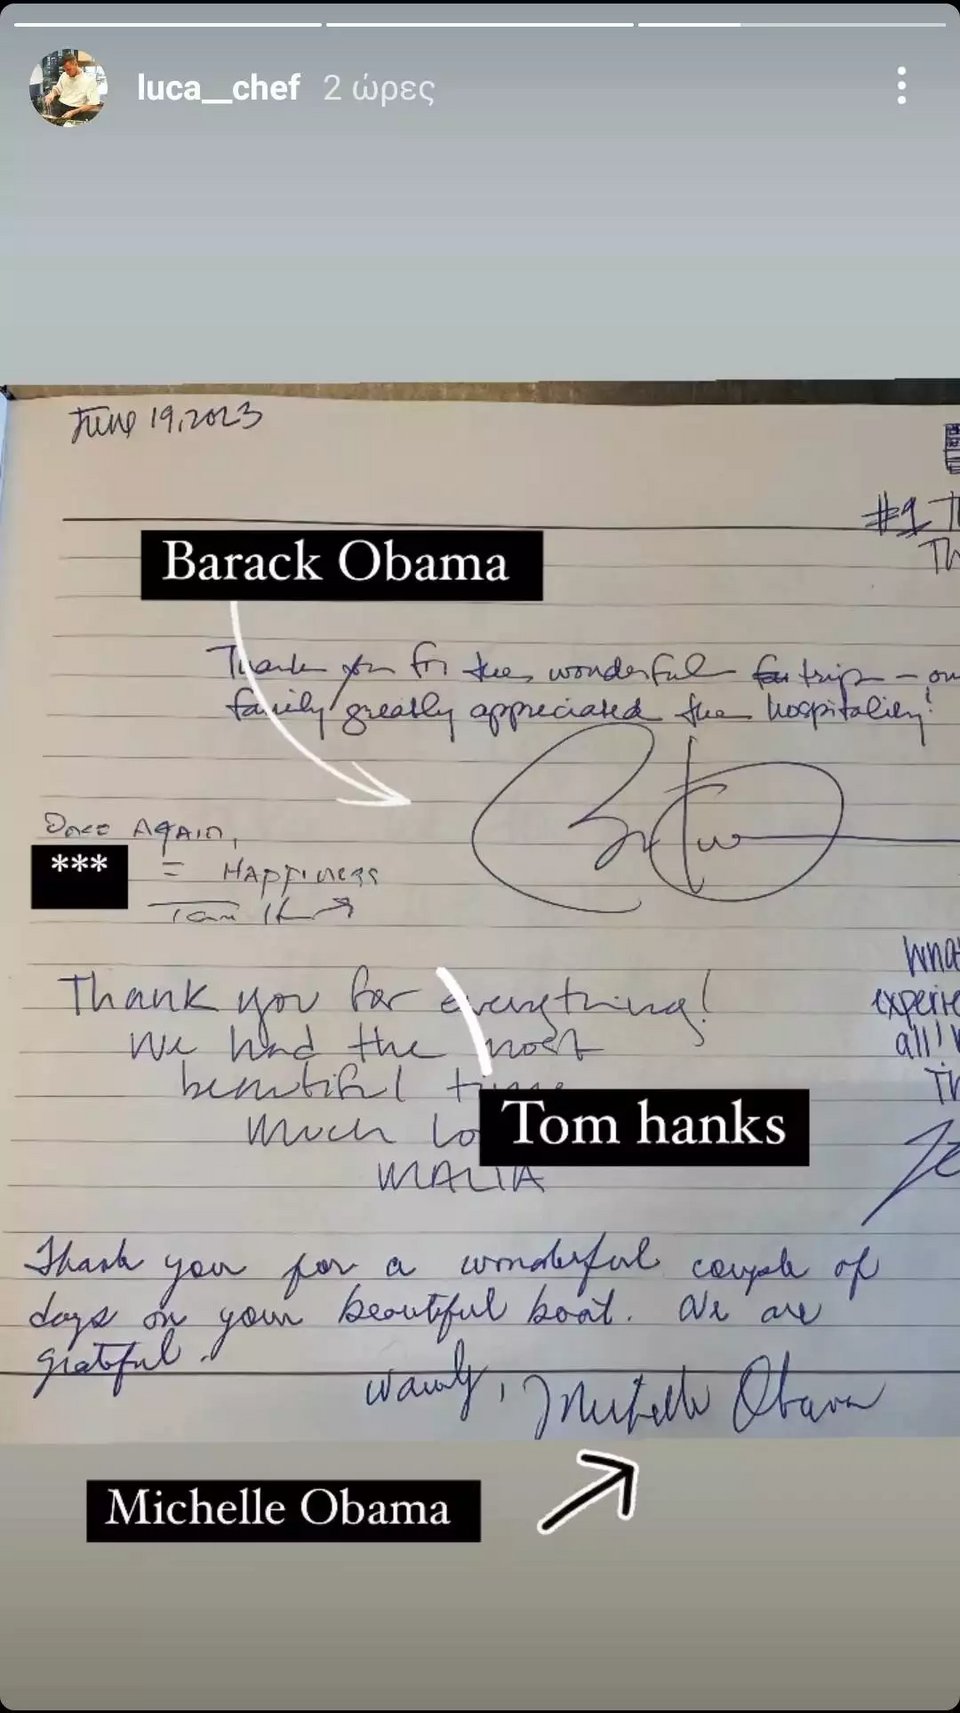 luca__chef 2 ώρες
June 19, 2023
#1
Barack Obama
Thank you for the wonderful trip - our
family greatly appreciated the hospitality!
Once Again,
*** = Happiness
Thank you for everything!
We had the most
beautiful time
Much
Tom hanks
MALIA
experie
all!
Thank you for a wonderful couple of
days on your beautiful boat. We are
grateful.
Warmly, Michelle Obama
Michelle Obama